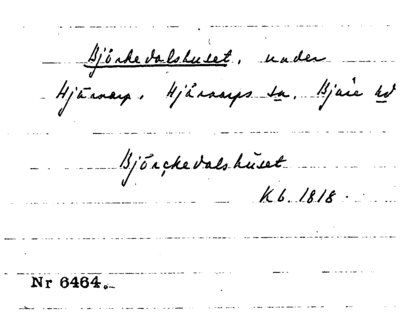 Björkedalshuset, under
Hjärnarp, Hjärnarps sn, Bjäre hd
Björckedalshuset
Kb. 1818.
Nr 6464.